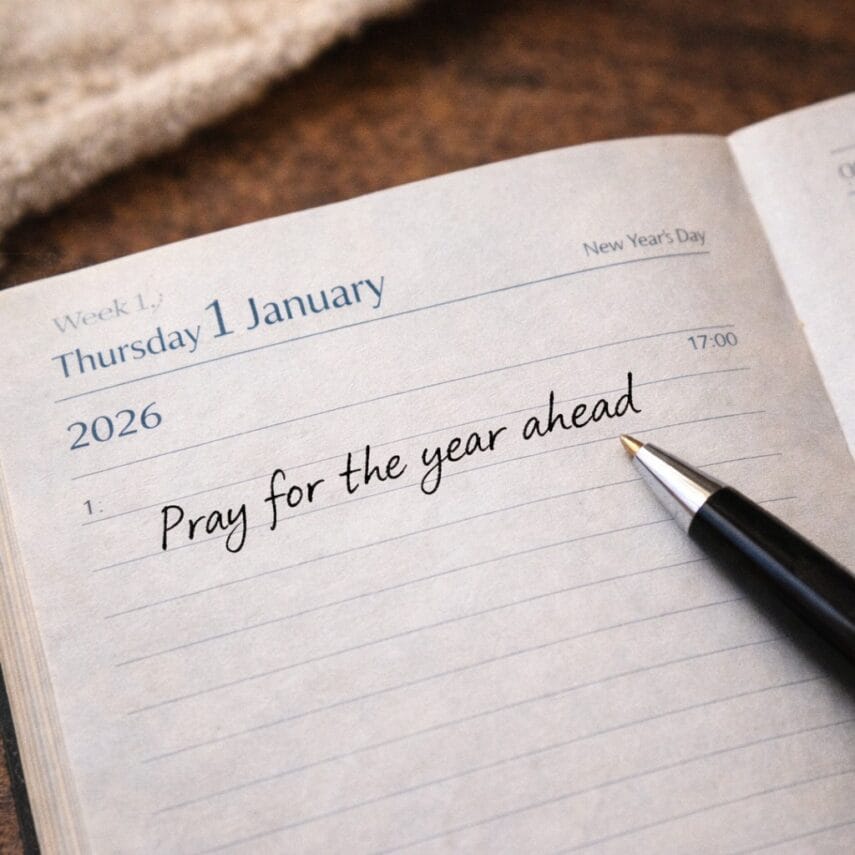 Week 1
New Year's Day
Thursday 1 January
17:00
2026
1:
Pray for the year ahead